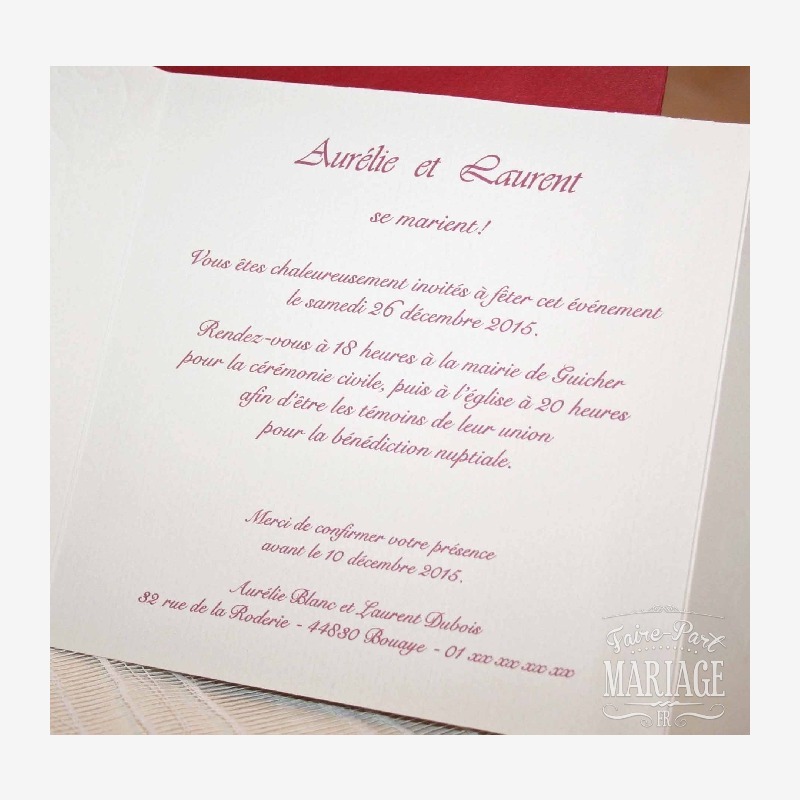 Aurélie et Laurent
se marient !
Vous êtes chaleureusement invités à fêter cet événement
le samedi 26 décembre 2015.
Rendez-vous à 18 heures à la mairie de Guicher
pour la cérémonie civile, puis à l'église à 20 heures
afin d'être les témoins de leur union
pour la bénédiction nuptiale.
Merci de confirmer votre présence
avant le 10 décembre 2015.
Aurélie Blanc et Laurent Dubois
32 rue de la Roderie - 44830 Bouaye - 01 xx xx xx xx
Faire-Part
MARIAGE
FR